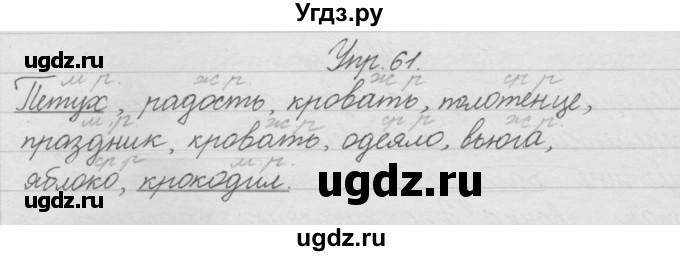 Угдз.ру
Упр. 61.
м р. ж р ж р ср р
Петух, радость, кровать, полотенце,
м р. ж р ср р ж р.
праздник, кровать, одеяло, вьюга,
ср р м р.
яблоко, крокодил.
ugdz.ru
ugdz.ru
ugdz.ru
ugdz.ru